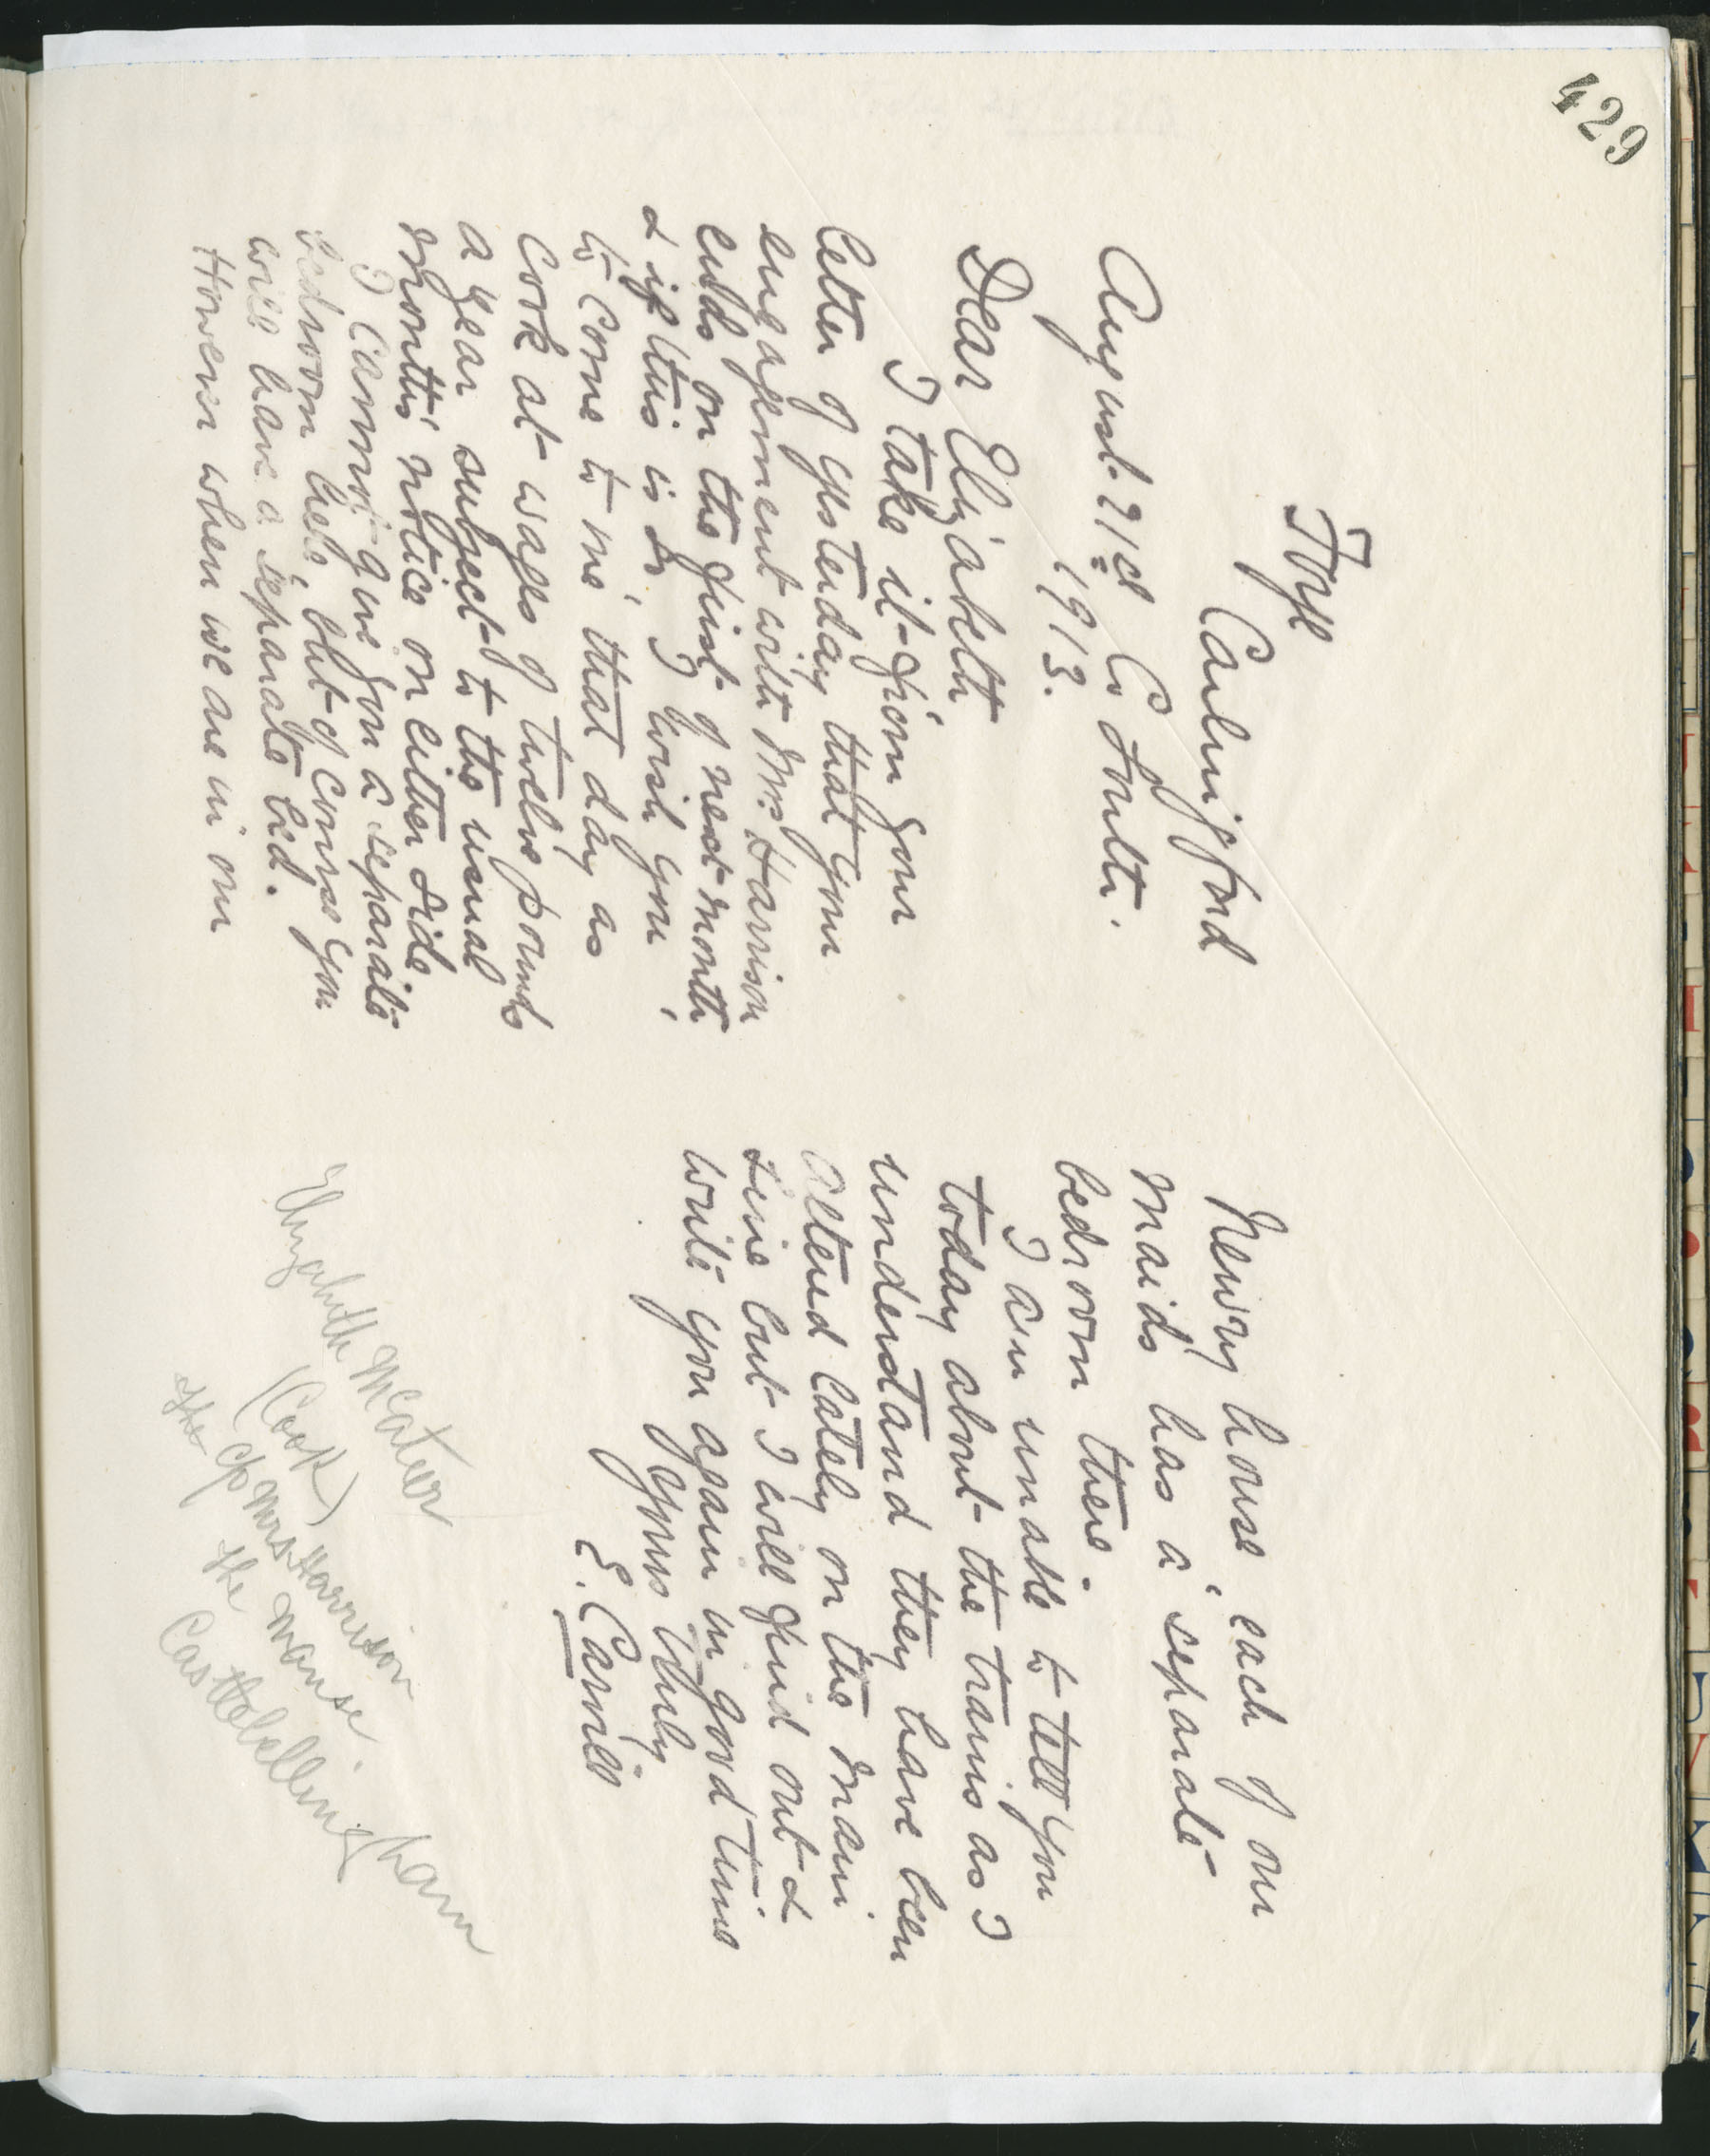 429
Foye
Carlingford
August 21st Co Louth.
1913.
Dear Elizabeth
I take it from your
letter of yesterday that your
engagement with Mrs Harrison
ends on the first of next month
& if this is so I wish you
to come to me that day as
Cook at wages of twelve pounds
a year subject to the usual
months notice on either side
I cannot give you a separate
bedroom here, but of course you
will have a separate bed.
However when we are in our
Newry house each of our
maids has a separate
bedroom there.
I am unable to tell you
today about the trains as I
understand they have been
altered lately on the main
line but I will find out &
write you again in good time
Yours truly
E. Carvill
Elizabeth McAteer
(Cook)
c/o Mrs Harrison
The The Manse.
Castlebellingham